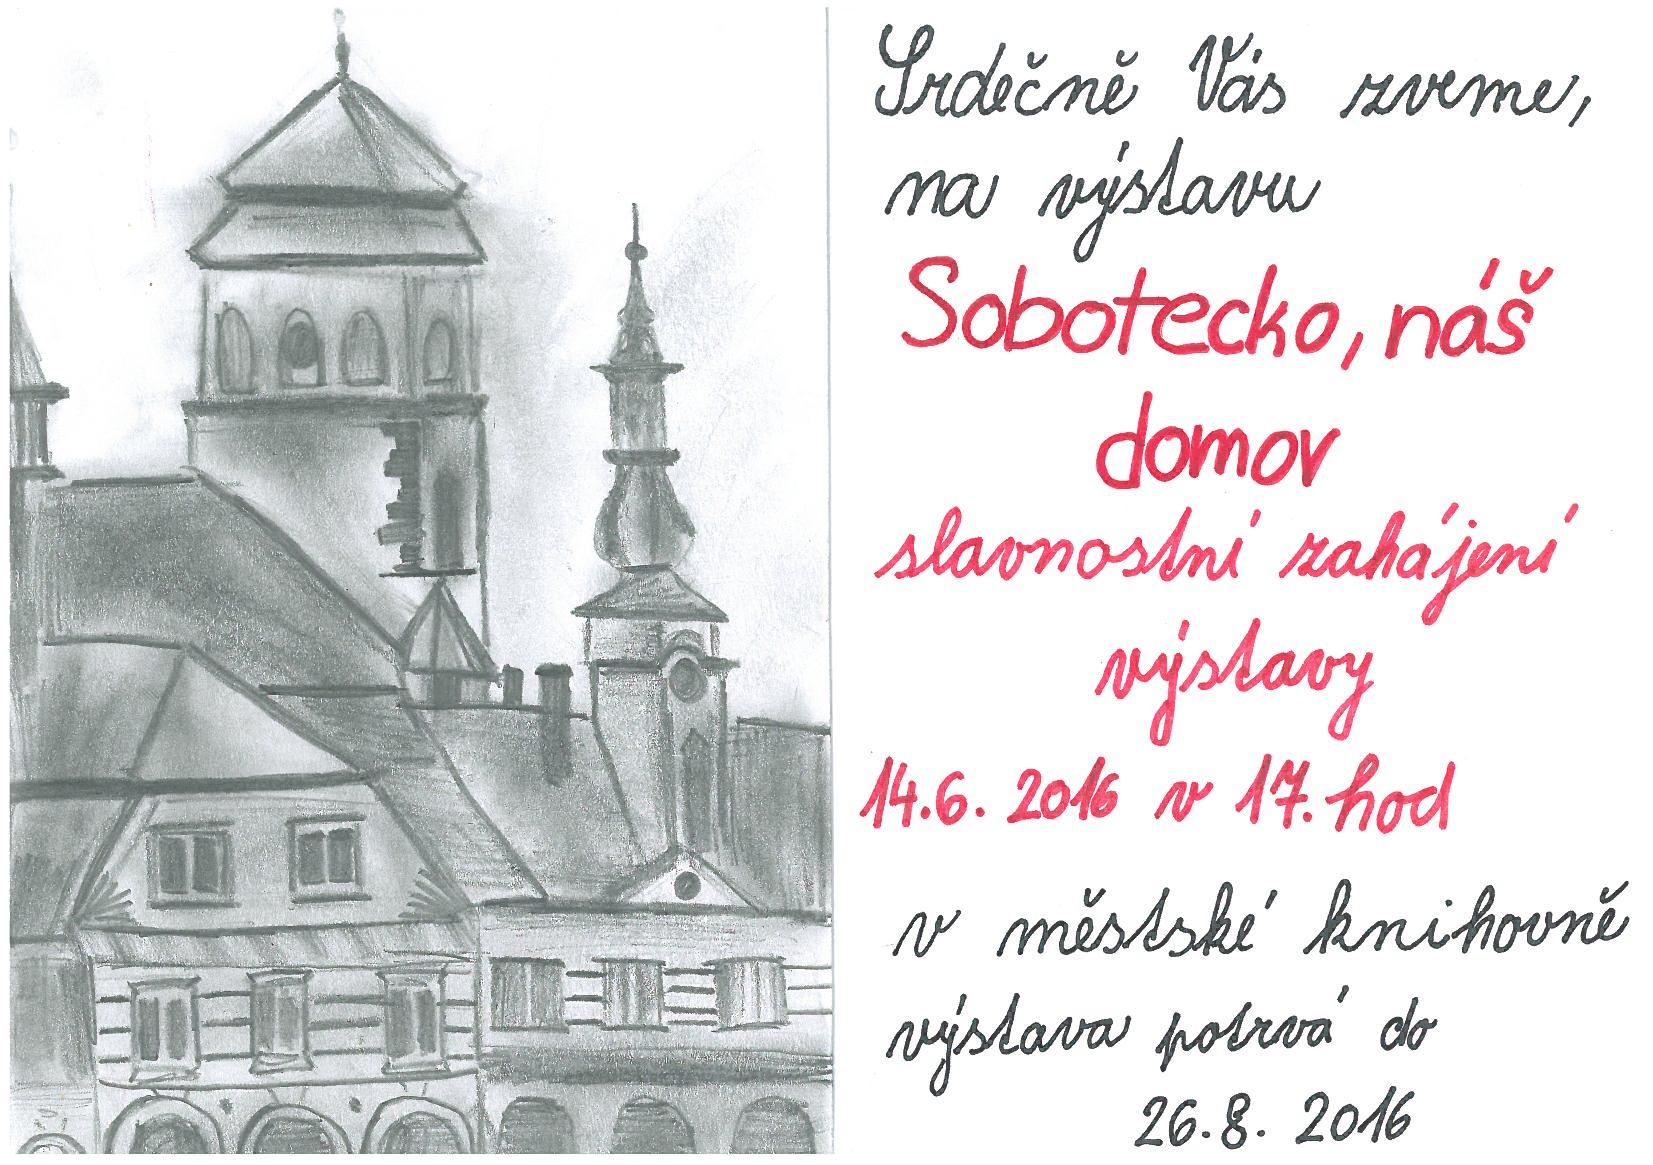 Srdečně Vás zveme,
na výstavu
Sobotecko, náš
domov
slavnostní zahájení
výstavy
14.6. 2016 v 17. hod
v městské knihovně
výstava potrvá do
26.8. 2016